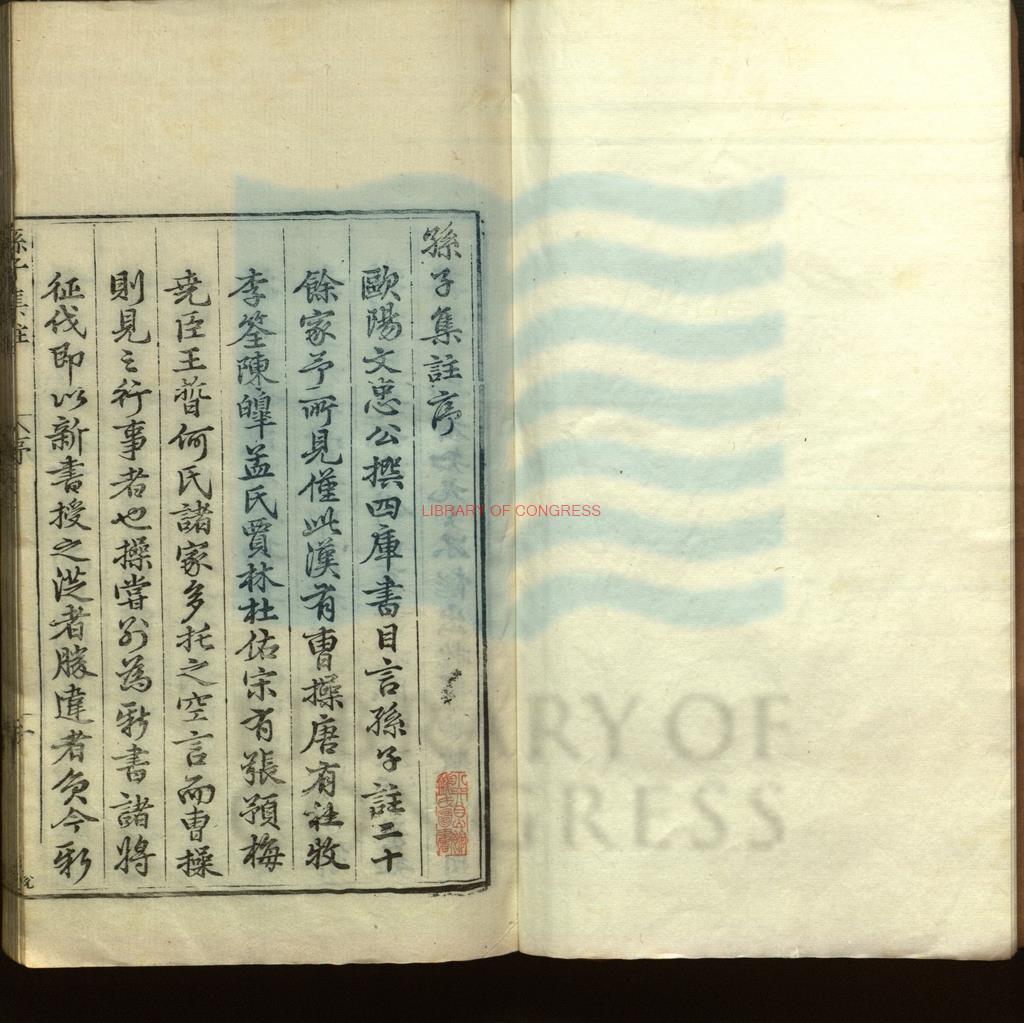 孫子集註序
歐陽文忠公撰四庫書目言孫子註二十
餘家予所見僅此漢有曹操唐有杜牧
李筌陳皥孟氏賈林杜佑宋有張預梅
堯臣王晳何氏諸家多托之空言而曹操
則見之行事者也操嘗別為新書諸將
征伐即以新書授之從者勝違者負今新
孫子集註
序
LIBRARY OF CONGRESS
RY OF
GRESS